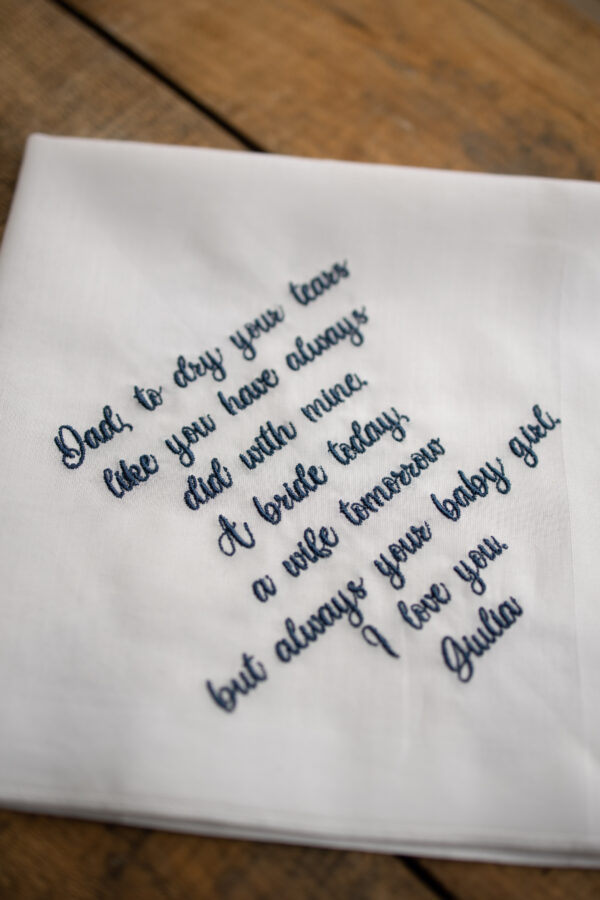 Dad, to dry your tears
like you have always
did with mine.
A bride today,
a wife tomorrow
but always your baby girl.
I love you.
Giulia